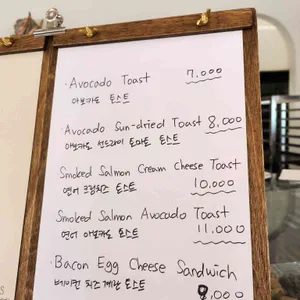 · Avocado Toast 7.000
아보카도 토스트
· Avocado Sun-dried Toast 8,000
아보카도 선드라이 토마토 토스트
Smoked Salmon Cream Cheese Toast
연어 크림치즈 토스트 10.000
Smoked Salmon Avocado Toast
연어 아보카도 토스트 11.000
· Bacon Egg Cheese Sandwich
베이컨 치즈 계란 토스트 8,000